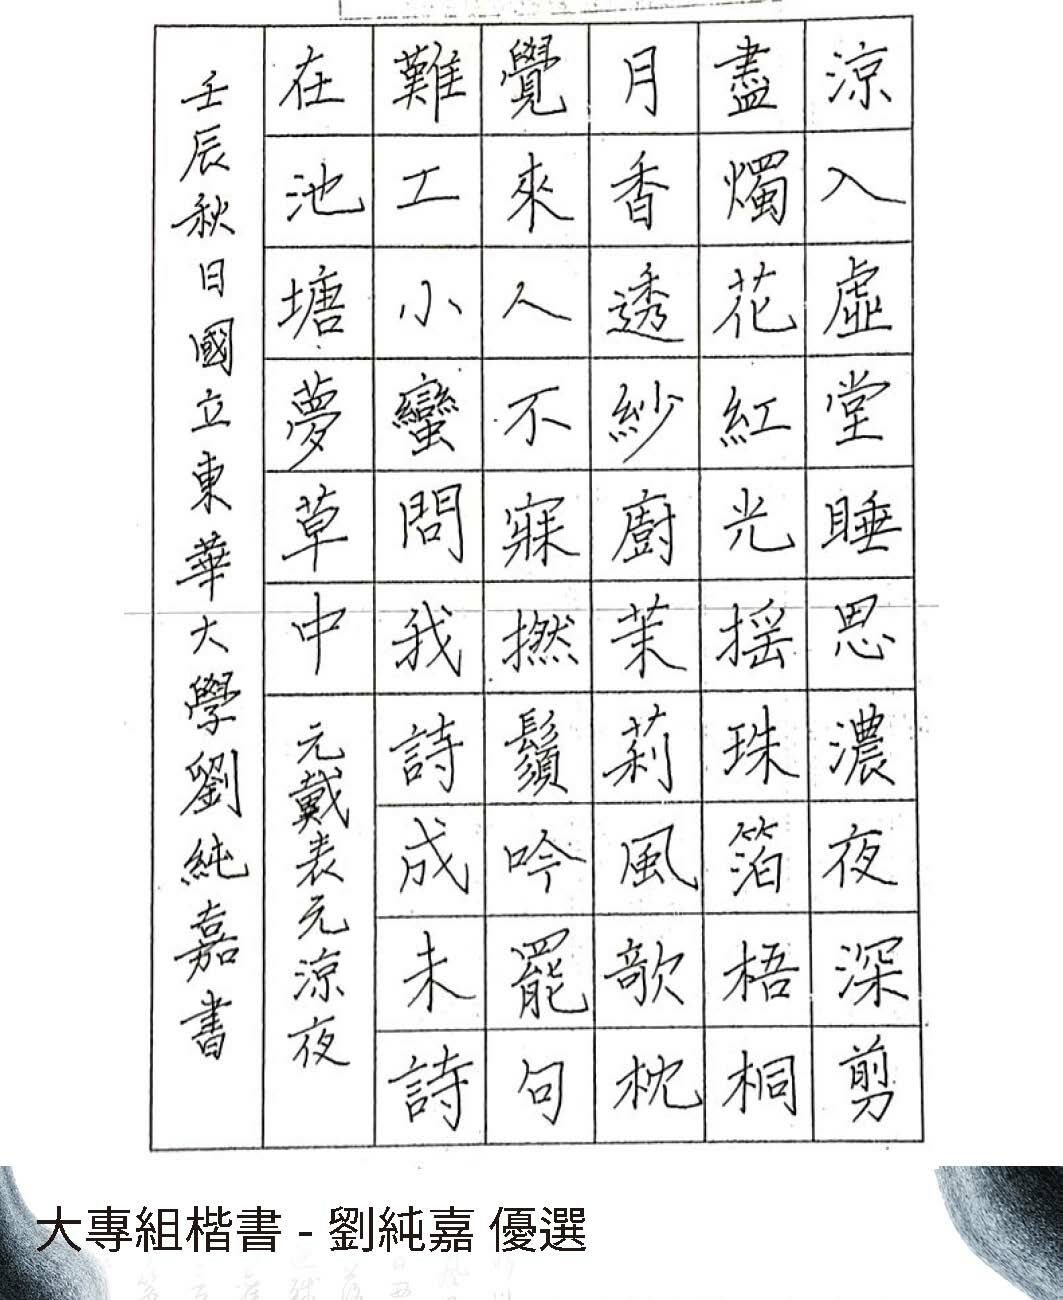 涼入虛堂睡思濃夜深剪
盡燭花紅光搖珠箔梧桐
月香透紗廚茉莉風歌枕
覺來人不寐撚鬚吟罷句
難工小蠻問我詩成未詩
在池塘夢草中
元戴表元涼夜
壬辰秋日國立東華大學劉純嘉書
大專組楷書 - 劉純嘉 優選